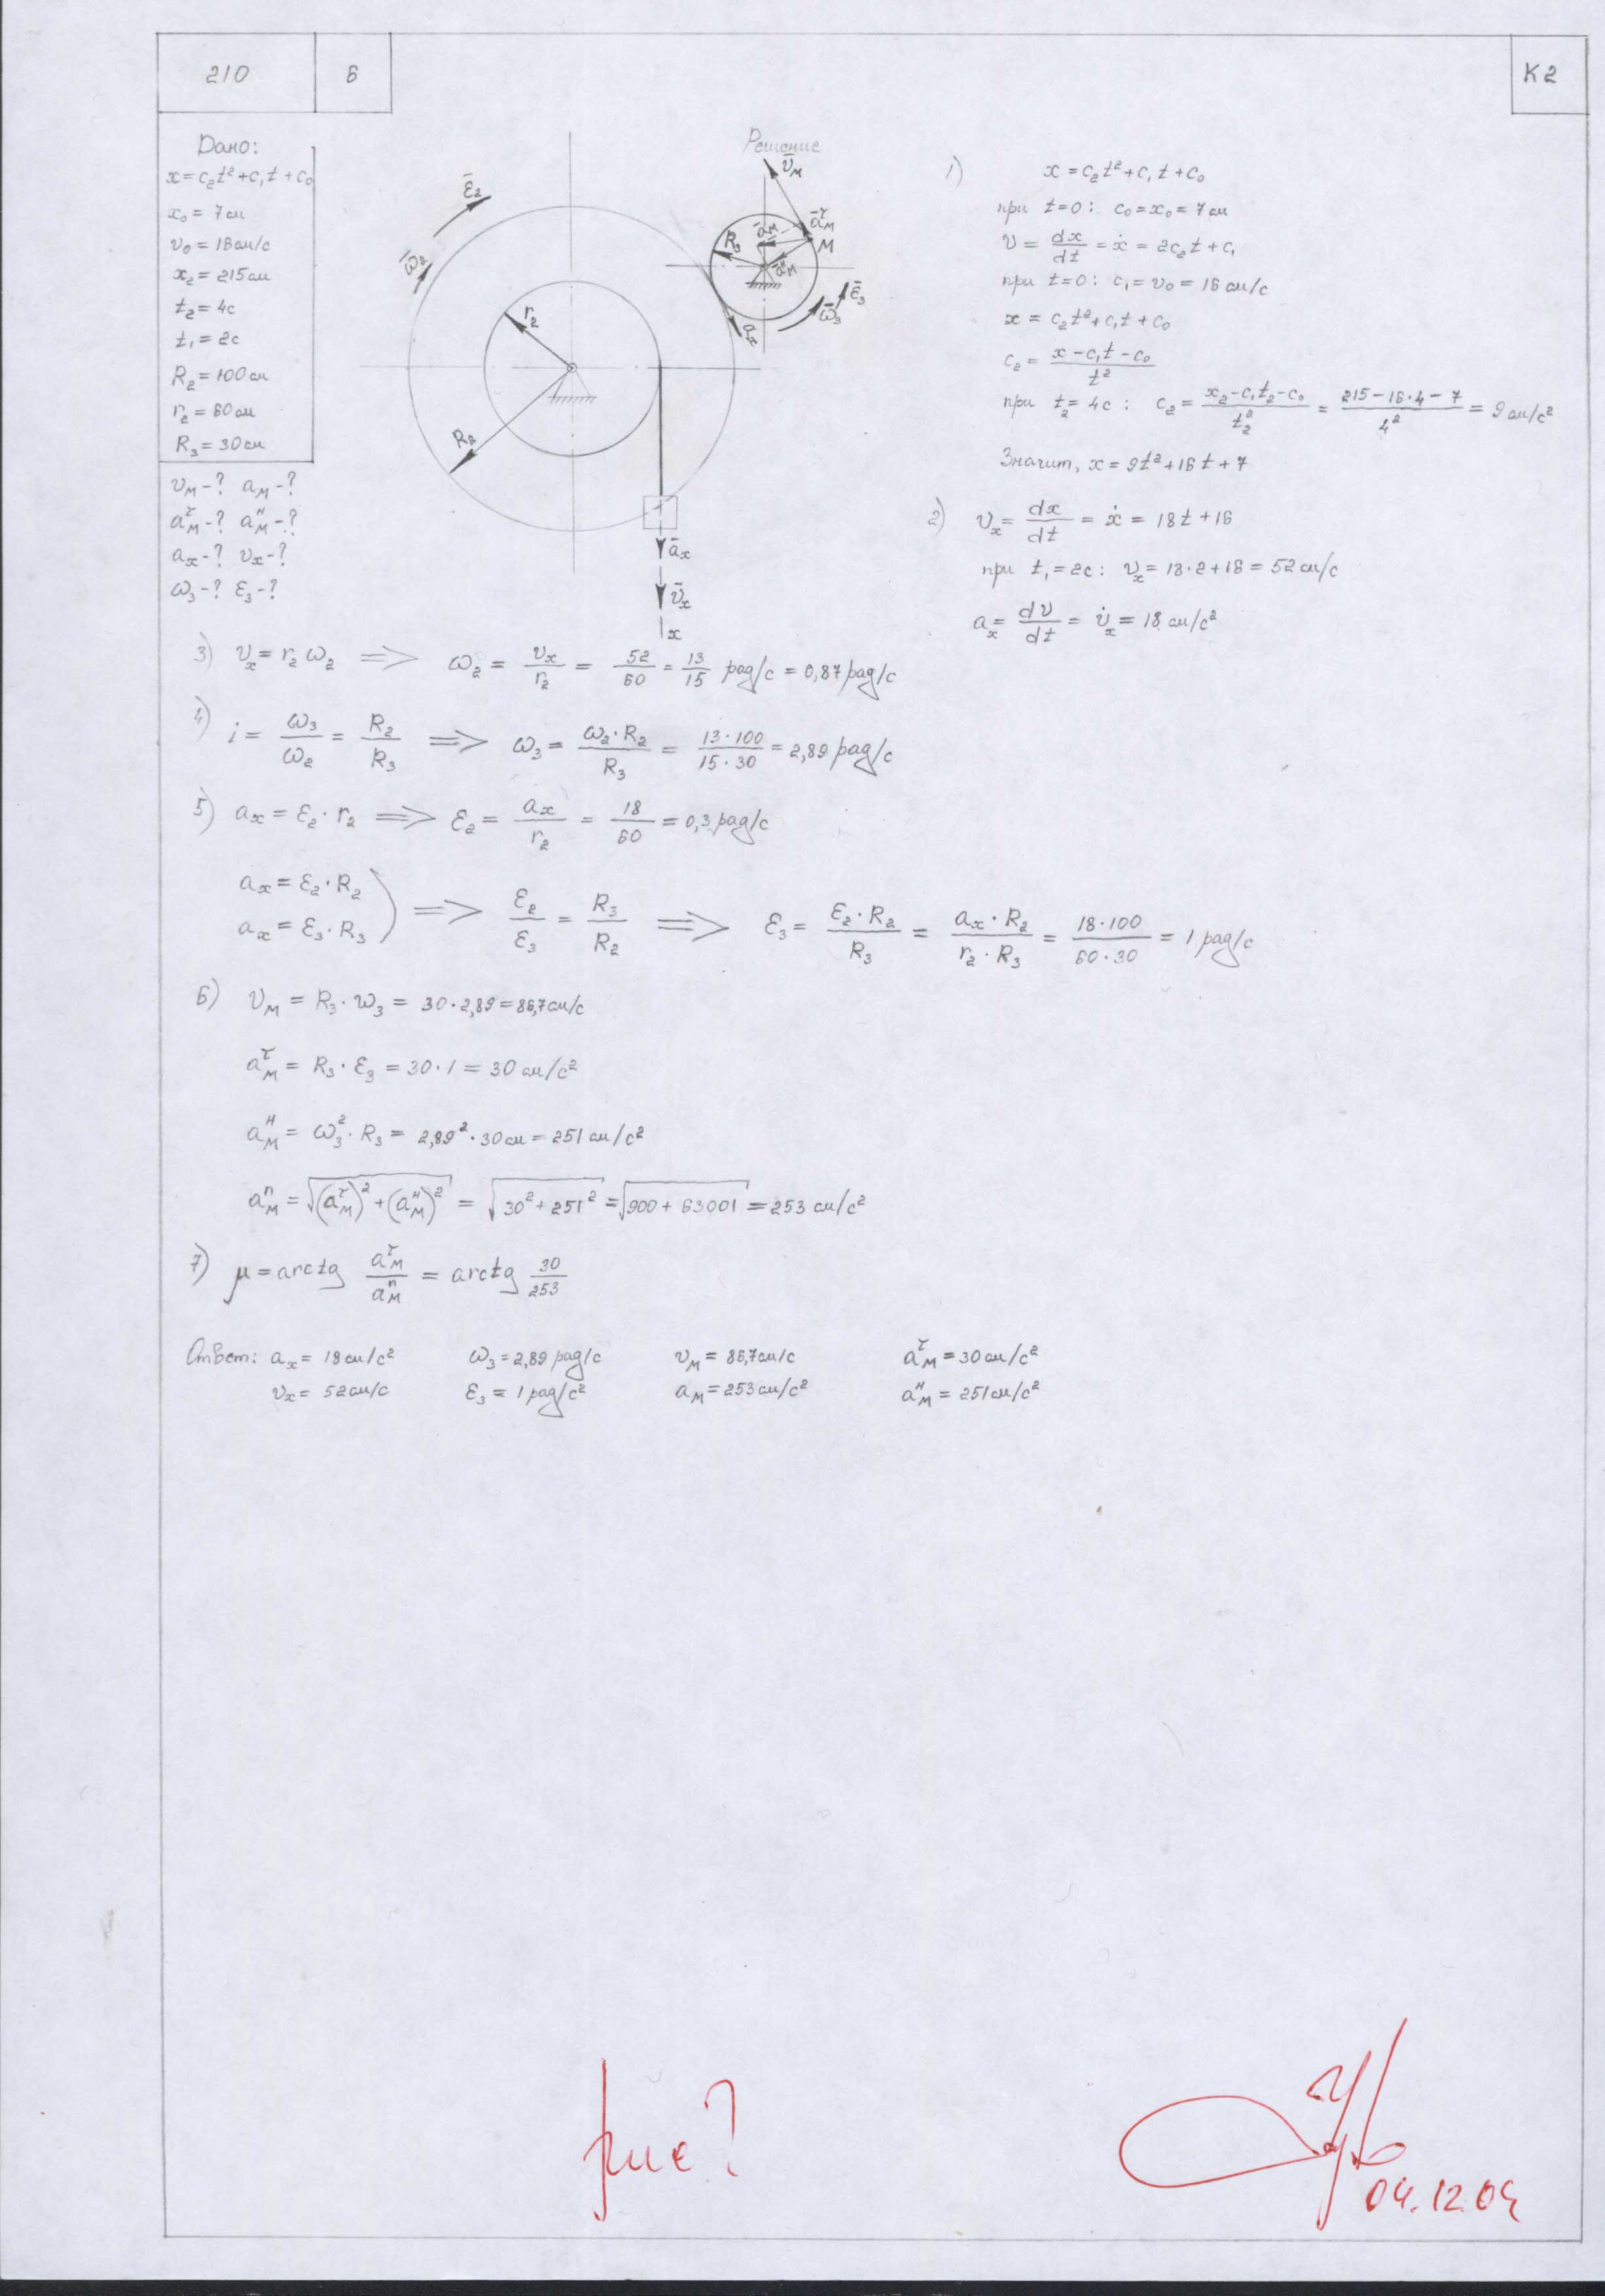 210
6
K2
Дано:
x = c₂t² + c₁t + c₀
x₀ = 7 см
v₀ = 16 см/с
x₂ = 215 см
t₂ = 4с
t₁ = 2с
R₂ = 100 см
r₂ = 60 см
R₃ = 30 см
v_M - ? a_M - ?
a_M^τ - ? a_M^н - ?
a_x - ? v_x - ?
ω₃ - ? ε₃ - ?
Решение
ε̄₂
ω̄₂
r₂
R₂
R₃
v̄_M
ā_M^τ
ā_M
M
ā_M^н
ε̄₃
ω̄₃
a_x
ā_x
v̄_x
x
1) x = c₂t² + c₁t + c₀
при t=0: c₀ = x₀ = 7 см
v = dx/dt = ẋ = 2c₂t + c₁
при t=0: c₁ = v₀ = 16 см/с
x = c₂t² + c₁t + c₀
c₂ = (x - c₁t - c₀)/t²
при t₂ = 4с: c₂ = (x₂ - c₁t₂ - c₀)/t₂² = (215 - 16·4 - 7)/4² = 9 см/с²
Значит, x = 9t² + 16t + 7
2) v_x = dx/dt = ẋ = 18t + 16
при t₁ = 2с: v_x = 18·2 + 16 = 52 см/с
a_x = dv/dt = v̇_x = 18 см/с²
3) v_x = r₂ω₂ => ω₂ = v_x/r₂ = 52/60 = 13/15 рад/с = 0,87 рад/с
4) i = ω₃/ω₂ = R₂/R₃ => ω₃ = ω₂·R₂/R₃ = 13·100/15·30 = 2,89 рад/с
5) a_x = ε₂·r₂ => ε₂ = a_x/r₂ = 18/60 = 0,3 рад/с
a_x = ε₂·R₂
a_x = ε₃·R₃ ) => ε₂/ε₃ = R₃/R₂ => ε₃ = ε₂·R₂/R₃ = a_x·R₂/r₂·R₃ = 18·100/60·30 = 1 рад/с
6) v_M = R₃·ω₃ = 30·2,89 = 86,7 см/с
a_M^τ = R₃·ε₃ = 30·1 = 30 см/с²
a_M^н = ω₃²·R₃ = 2,89²·30 см = 251 см/с²
a_M^n = √((a_M^τ)² + (a_M^н)²) = √(30² + 251²) = √(900 + 63001) = 253 см/с²
7) μ = arctg a_M^τ/a_M^n = arctg 30/253
Ответ: a_x = 18 см/с² ω₃ = 2,89 рад/с v_M = 86,7 см/с a_M^τ = 30 см/с²
v_x = 52 см/с ε₃ = 1 рад/с² a_M = 253 см/с² a_M^н = 251 см/с²
рис?
04.12.04